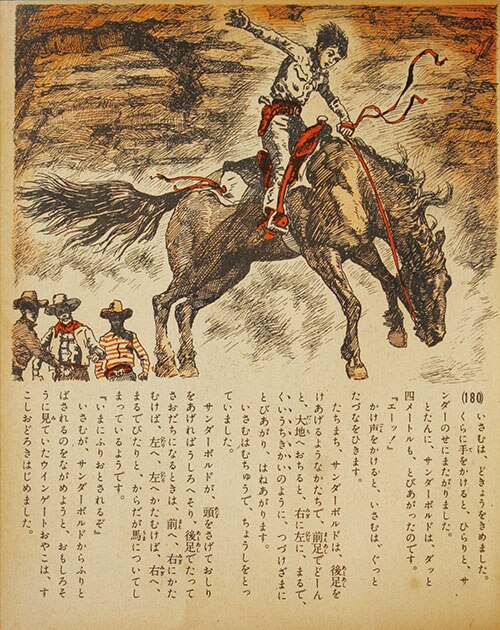 (180)
いさむは、どきょうをきめました。
くらに手をかけると、ひらりと、サ
ンダーのせにまたがりました。
とたんに、サンダーボルドは、ダッと
四メートルも、とびあがったのです。
『エーッ。』
かけ声をかけると、いさむは、ぐっと
たづなをひきます。
たちまち、サンダーボルドは、後足を
けあげるようなかたちで、前足でどーん
と、大地へおちると、右に左に、まるで、
くいうちきかいのように、つづけざまに
とびあがり、はねあがります。
いさむはむちゅうで、ちょうしをとっ
ていました。
サンダーボルドが、頭をさげておしり
をあげればうしろへそり、後足でたって
さおだちになるときは、前へ、右にかた
むけば、左へ、左へかたむけば、右へ、
まるでぴたりと、からだが馬についてし
まっているようです。
『いまにふりおとされるぞ』
いさむが、サンダーボルドからふりと
ばされるのをながめようと、おもしろそ
うに見ていたウインゲートおやこは、す
こしおどろきはじめました。